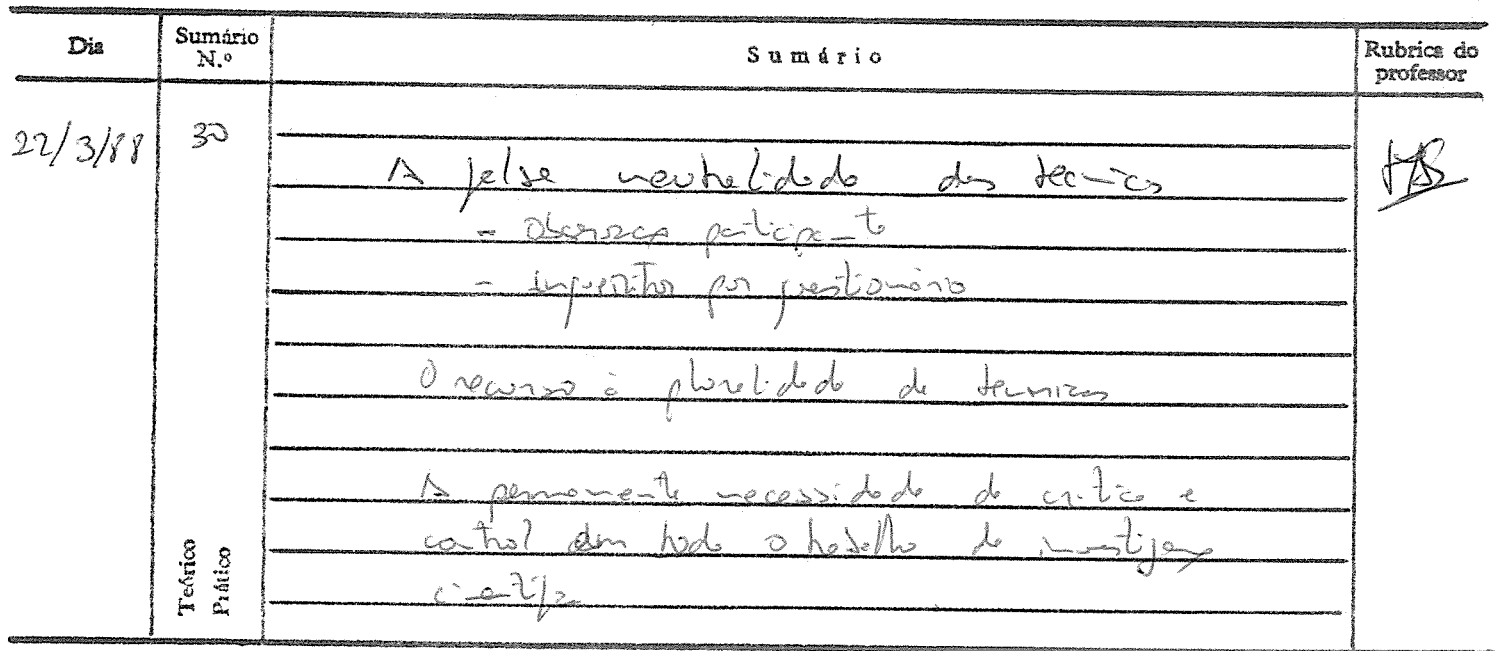 Dia
Sumário N.º
Sumário
Rubrica do professor
22/3/88
30
A falsa neutralidade das técnicas
- Observação participante
- inquéritos por questionário
O recurso à pluralidade de técnicas
A permanente necessidade de crítica e
control em todo o trabalho de investigação
científica
Teórico
Prático